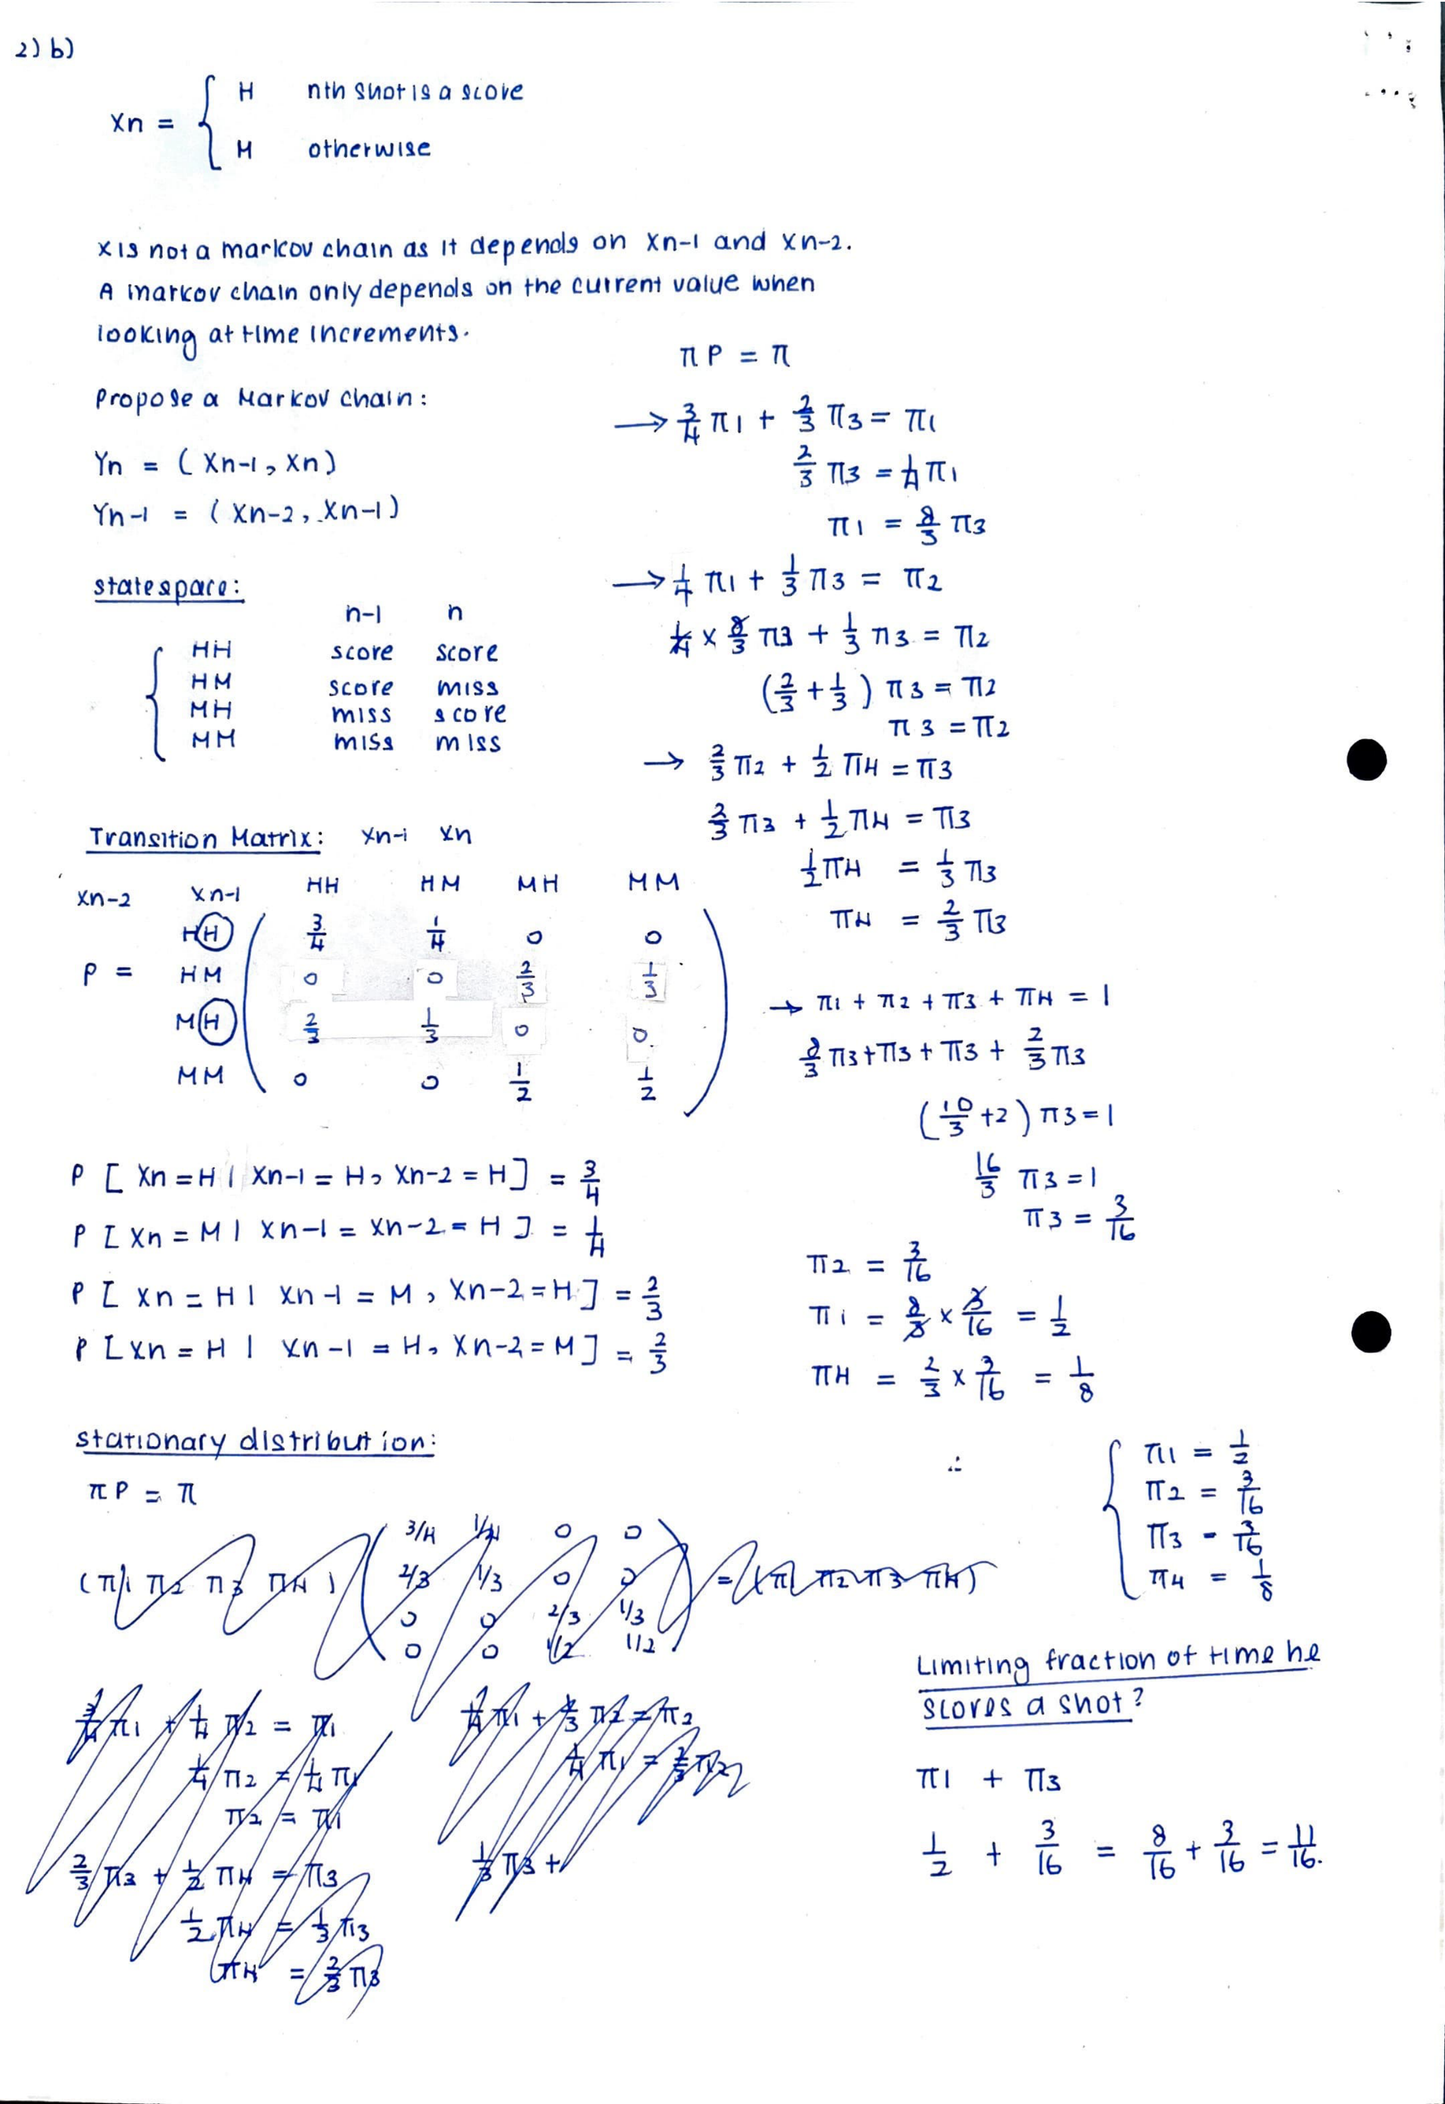 2) b)
Xn = { H nth shot is a score
M otherwise
X is not a markov chain as it depends on Xn-1 and Xn-2.
A markov chain only depends on the current value when
looking at time increments.
Propose a Markov chain:
Yn = (Xn-1, Xn)
Yn-1 = (Xn-2, Xn-1)
statespace:
n-1 n
HH score score
HM score miss
MH miss score
MM miss miss
Transition Matrix: Xn-1 Xn
Xn-2 Xn-1 HH HM MH MM
HH 3/4 1/4 0 0
P = HM 0 0 2/3 1/3
MH 2/3 1/3 0 0
MM 0 0 1/2 1/2
P [ Xn = H | Xn-1 = H, Xn-2 = H ] = 3/4
P [ Xn = M | Xn-1 = Xn-2 = H ] = 1/4
P [ Xn = H | Xn-1 = M, Xn-2 = H ] = 2/3
P [ Xn = H | Xn-1 = H, Xn-2 = M ] = 2/3
stationary distribution:
πP = π
(π1 π2 π3 π4) ( 3/4 1/4 0 0
2/3 1/3 0 0
0 0 2/3 1/3
0 0 1/2 1/2 ) = (π1 π2 π3 π4)
3/4 π1 + 1/4 π2 = π1
1/4 π2 = 1/4 π1
π2 = π1
2/3 π3 + 1/2 π4 = π3
1/2 π4 = 1/3 π3
π4 = 2/3 π3
1/3 π3 +
πP = π
→ 3/4 π1 + 2/3 π3 = π1
2/3 π3 = 1/4 π1
π1 = 8/3 π3
→ 1/4 π1 + 1/3 π3 = π2
1/4 × 8/3 π3 + 1/3 π3 = π2
(2/3 + 1/3) π3 = π2
π3 = π2
→ 2/3 π2 + 1/2 π4 = π3
2/3 π3 + 1/2 π4 = π3
1/2 π4 = 1/3 π3
π4 = 2/3 π3
→ π1 + π2 + π3 + π4 = 1
8/3 π3 + π3 + π3 + 2/3 π3
(10/3 + 2) π3 = 1
16/3 π3 = 1
π3 = 3/16
π2 = 3/16
π1 = 8/3 × 3/16 = 1/2
π4 = 2/3 × 3/16 = 1/8
∴ { π1 = 1/2
π2 = 3/16
π3 = 3/16
π4 = 1/8
Limiting fraction of time he
scores a shot?
π1 + π3
1/2 + 3/16 = 8/16 + 3/16 = 11/16.